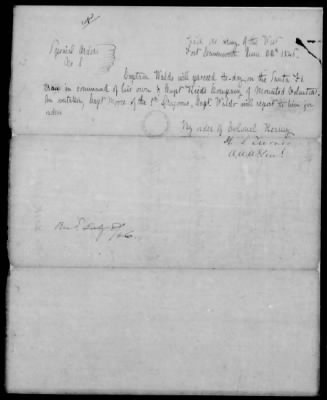 Head Qrs Army of the West
Fort Leavenworth June 1846
Special Orders
No 1
Captain Waldo will proceed to-day on the Santa Fe
in command of his own & Capt Reids Company of Mounted Volunteers
On Capt Moore of the 1st Dragoons, Capt Waldo will report to him for
orders
By order of Colonel Kearny
H S Turner
Recd July